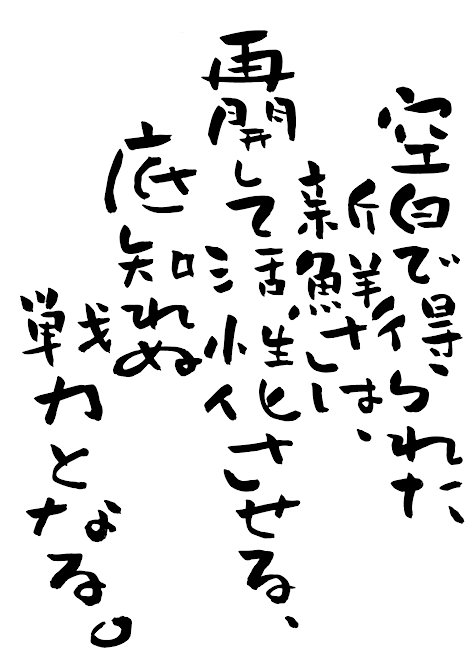 空白で得られた、
新鮮さは、
再開して活性化させる、
底知れぬ
戦力となる。